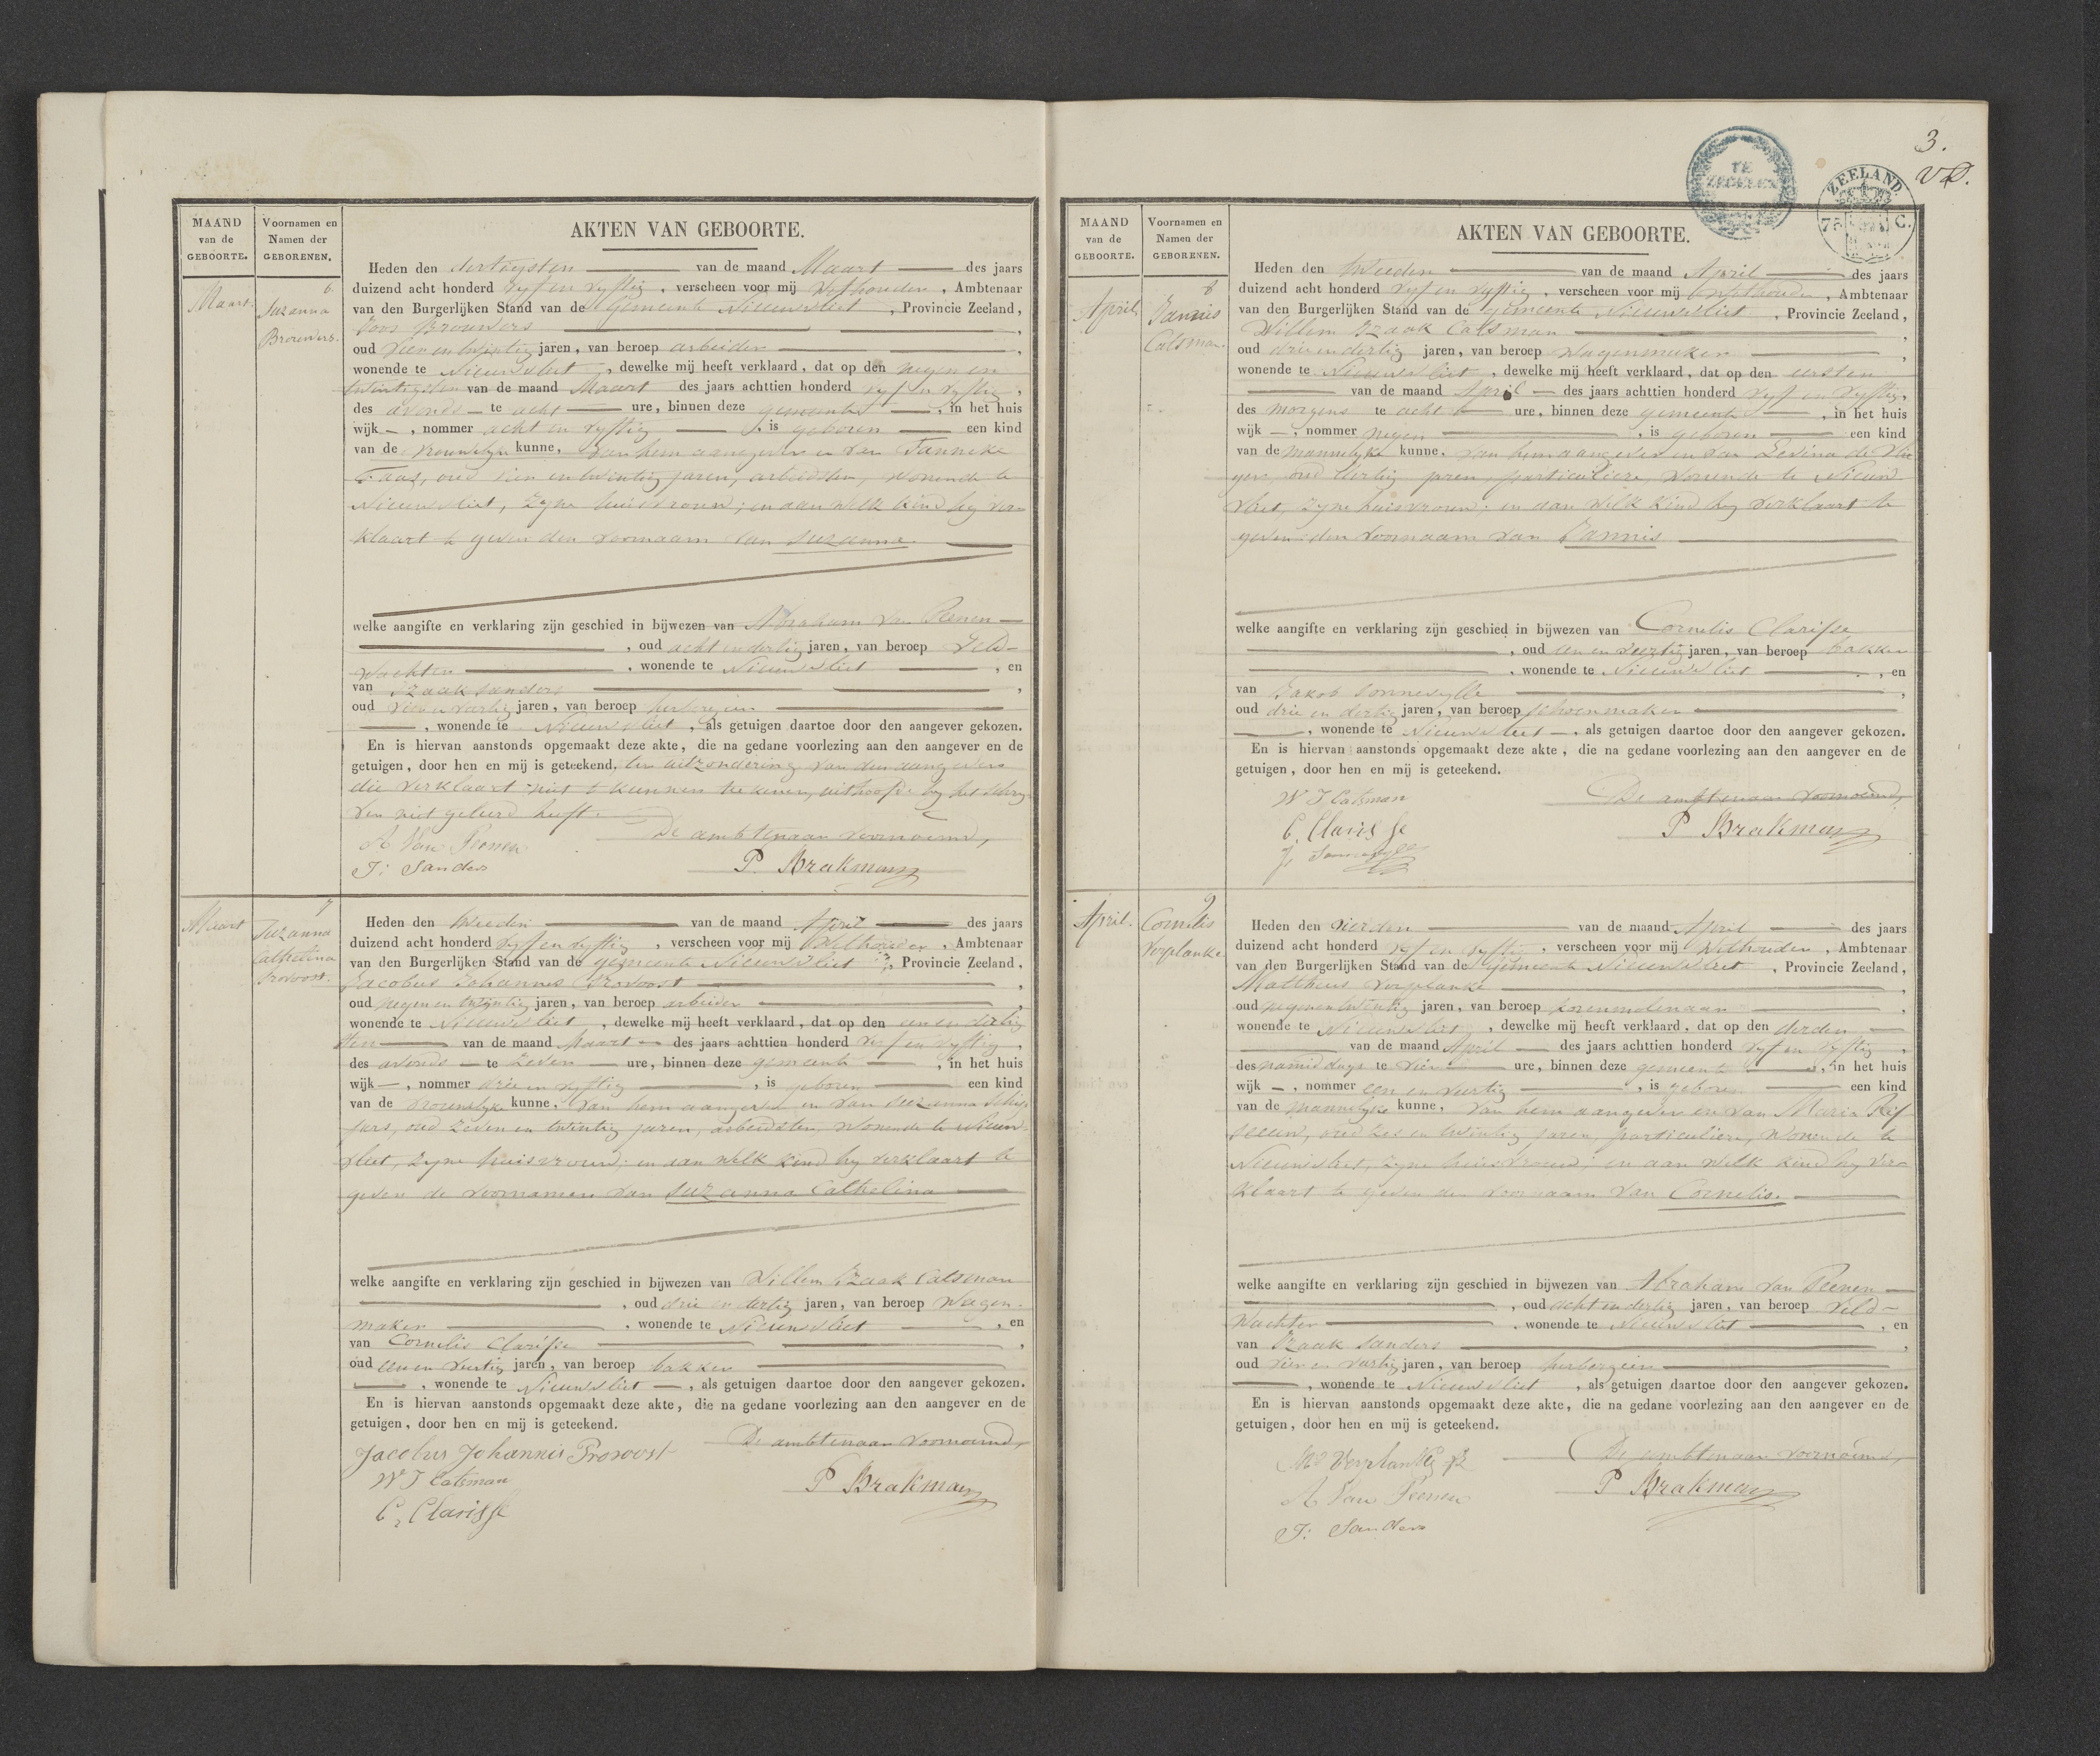 MAAND
van de
GEBOORTE.
Voornamen en
Namen der
GEBORENEN.
AKTEN VAN GEBOORTE.
Maart.
6
Suzanna
Brouwers.
Heden den dertigsten van de maand Maart des jaars
duizend acht honderd vyf en vyftig, verscheen voor mij Wethouder, Ambtenaar
van den Burgerlijken Stand van de gemeente Nieuwvliet, Provincie Zeeland,
Joos Brouwers,
oud vier en twintig jaren, van beroep arbeider,
wonende te Nieuwvliet, dewelke mij heeft verklaard, dat op den negen en
twintigsten van de maand Maart des jaars achttien honderd vyf en vyftig,
des avonds te acht ure, binnen deze gemeente, in het huis
wijk –, nommer acht en vyftig, is geboren een kind
van de vrouwelyke kunne, van hem aangever en van Tanneke
Faas, oud vier en twintig jaren, arbeidster, wonende te
Nieuwvliet, zyne huisvrouw; en aan welk kind hy ver-
klaart te geven den voornaam van Suzanna.
welke aangifte en verklaring zijn geschied in bijwezen van Abraham van Peenen
, oud acht en dertig jaren, van beroep Veld-
wachter, wonende te Nieuwvliet, en
van Izaak Sanders,
oud vier en veertig jaren, van beroep herbergier
, wonende te Nieuwvliet, als getuigen daartoe door den aangever gekozen.
En is hiervan aanstonds opgemaakt deze akte, die na gedane voorlezing aan den aangever en de
getuigen, door hen en mij is geteekend, ter uitzondering van den aangever
die verklaart niet te kunnen teekenen, uithoofde hy het schry-
ven niet geleerd heeft.
De ambtenaar voornoemd,
A Van Peenen
J: Sanders
P. Brakman
Maart
7
Suzanna
Cathelina
Provoost.
Heden den tweeden van de maand April des jaars
duizend acht honderd vyf en vyftig, verscheen voor mij Wethouder, Ambtenaar
van den Burgerlijken Stand van de gemeente Nieuwvliet, Provincie Zeeland,
Jacobus Johannes Provoost,
oud negen en twintig jaren, van beroep arbeider,
wonende te Nieuwvliet, dewelke mij heeft verklaard, dat op den een en dertig
sten van de maand Maart des jaars achttien honderd vyf en vyftig,
des avonds te zeven ure, binnen deze gemeente, in het huis
wijk –, nommer drie en vyftig, is geboren een kind
van de vrouwelyke kunne, van hem aangever en van Suzanna
oud zeven en twintig jaren, arbeidster, wonende te Nieuw-
vliet, zyne huisvrouw; en aan welk kind hy verklaart te
geven de voornamen van Suzanna Cathelina
welke aangifte en verklaring zijn geschied in bijwezen van Willem Izaak Catsman
, oud drie en dertig jaren, van beroep Wagen-
maker, wonende te Nieuwvliet, en
van Cornelis Clarisse,
oud een en veertig jaren, van beroep bakker
, wonende te Nieuwvliet, als getuigen daartoe door den aangever gekozen.
En is hiervan aanstonds opgemaakt deze akte, die na gedane voorlezing aan den aangever en de
getuigen, door hen en mij is geteekend.
De ambtenaar voornoemd,
Jacobus Johannis Provoost
W I Catsman
C, Clarisse
P Brakman
3.
TE
ZEGELEN
ZEELAND.
75 C.
MAAND
van de
GEBOORTE.
Voornamen en
Namen der
GEBORENEN.
AKTEN VAN GEBOORTE.
April
8
Jannis
Catsman.
Heden den tweeden van de maand April des jaars
duizend acht honderd vyf en vyftig, verscheen voor mij Wethouder, Ambtenaar
van den Burgerlijken Stand van de gemeente Nieuwvliet, Provincie Zeeland,
Willem Izaak Catsman,
oud drie en dertig jaren, van beroep Wagenmaker,
wonende te Nieuwvliet, dewelke mij heeft verklaard, dat op den eersten
van de maand April des jaars achttien honderd vyf en vyftig,
des morgens te acht ure, binnen deze gemeente, in het huis
wijk –, nommer negen, is geboren een kind
van de mannelyke kunne, van hem aangever en van Levina de Vlie
ger, oud dertig jaren, particuliere, wonende te Nieuw
vliet, zyne huisvrouw; en aan welk kind hy verklaart te
geven den voornaam van Jannis
welke aangifte en verklaring zijn geschied in bijwezen van Cornelis Clarisse
, oud een en veertig jaren, van beroep bakker
, wonende te Nieuwvliet, en
van Jakob Sonnevylle,
oud drie en dertig jaren, van beroep schoenmaker
, wonende te Nieuwvliet, als getuigen daartoe door den aangever gekozen.
En is hiervan aanstonds opgemaakt deze akte, die na gedane voorlezing aan den aangever en de
getuigen, door hen en mij is geteekend.
De ambtenaar voornoemd,
W I Catsman
C, Clarisse
P Brakman
April.
9
Cornelis
Verplanke
Heden den vierden van de maand April des jaars
duizend acht honderd vyf en vyftig, verscheen voor mij Wethouder, Ambtenaar
van den Burgerlijken Stand van de gemeente Nieuwvliet, Provincie Zeeland,
Mattheus Verplanke,
oud negen en twintig jaren, van beroep korenmolenaar,
wonende te Nieuwvliet, dewelke mij heeft verklaard, dat op den derden
van de maand April des jaars achttien honderd vyf en vyftig,
des namiddags te vier ure, binnen deze gemeente, in het huis
wijk –, nommer een en veertig, is geboren een kind
van de mannelyke kunne, van hem aangever en van Maria
oud zes en twintig jaren, particuliere, wonende te
Nieuwvliet, zyne huisvrouw; en aan welk kind hy ver-
klaart te geven den voornaam van Cornelis.
welke aangifte en verklaring zijn geschied in bijwezen van Abraham van Peenen
, oud acht en dertig jaren, van beroep Veld-
wachter, wonende te Nieuwvliet, en
van Izaak Sanders,
oud vier en veertig jaren, van beroep herbergier
, wonende te Nieuwvliet, als getuigen daartoe door den aangever gekozen.
En is hiervan aanstonds opgemaakt deze akte, die na gedane voorlezing aan den aangever en de
getuigen, door hen en mij is geteekend.
De ambtenaar voornoemd,
A Van Peenen
J: Sanders
P Brakman